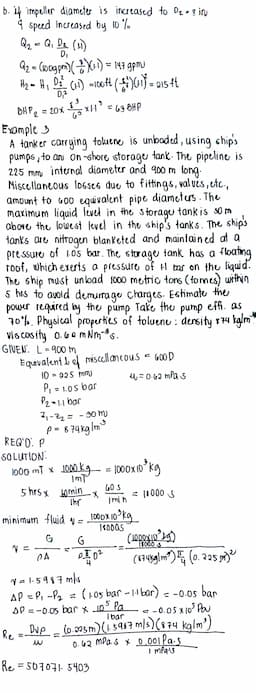 b. if impeller diameter is increased to D2 = 8 in
& speed increased by 10%
Q2 = Q1 D2/D1 (s)
Q2 = (100gpm)(8/6)(1.1) = 147 gpm
H2 = H1 D2²/D1² (s) = 100ft (8/6)²(1.1)² = 215 ft
BHP2 = 20 x 8³/6³ x 1.1³ = 63 BHP
Example 3
A tanker carrying toluene is unboaded, using ship's
pumps, to an on-shore storage tank. The pipeline is
225 mm internal diameter and 900 m long.
Miscellaneous losses due to fittings, valves, etc.,
amount to 600 equivalent pipe diameters. The
maximum liquid level in the storage tank is 30 m
above the lowest level in the ship's tanks. The ship's
tanks are nitrogen blanketed and maintained at a
pressure of 1.05 bar. The storage tank has a floating
roof, which exerts a pressure of 1.1 bar on the liquid.
The ship must unload 1000 metric tons (tonnes) within
5 hrs to avoid demurrage charges. Estimate the
power required by the pump Take the pump effi. as
70%. Physical properties of toluene: density 874 kg/m³
viscosity 0.62 mNm⁻²s.
GIVEN: L = 900 m
Equivalent L of miscellaneous = 600D
ID = 225 mm u = 0.62 mPa.s
P1 = 1.05 bar
P2 = 1.1 bar
z1 - z2 = -30 m
ρ = 874 kg/m³
REQ'D: P
SOLUTION:
1000 mT x 1000 kg/1mT = 1000x10³ kg
5 hrs x 60min/1hr x 60 s/1min = 18000 s
minimum fluid v = 1000x10³kg/18000s
v = G/ρA = G/ρ π/4 D² = (1000x10³kg/18000 s)/(874kg/m³) π/4 (0.225 m)²
v = 1.5987 m/s
ΔP = P1 - P2 = (1.05 bar - 1.1 bar) = -0.05 bar
ΔP = -0.05 bar x 10⁵ Pa/1bar = -0.05 x 10⁵ Pa
Re = Dvρ/u = (0.225m)(1.5987 m/s)(874 kg/m³)/0.62 mPa.s x 0.001Pa.s/1 mPa.s
Re = 507071.5403